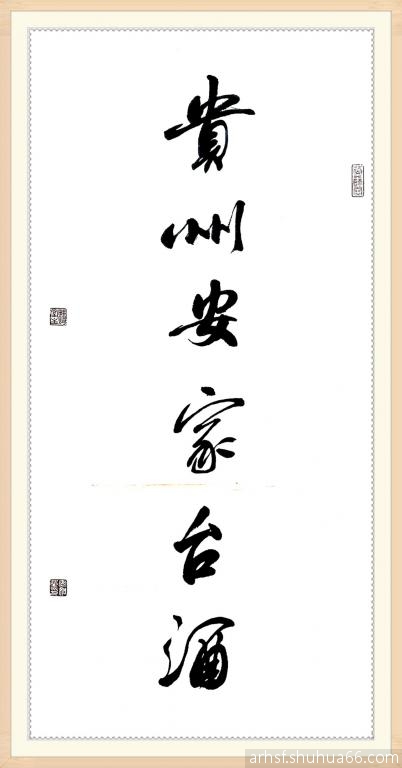 貴州安家台酒
arhsf.shuhua66.com